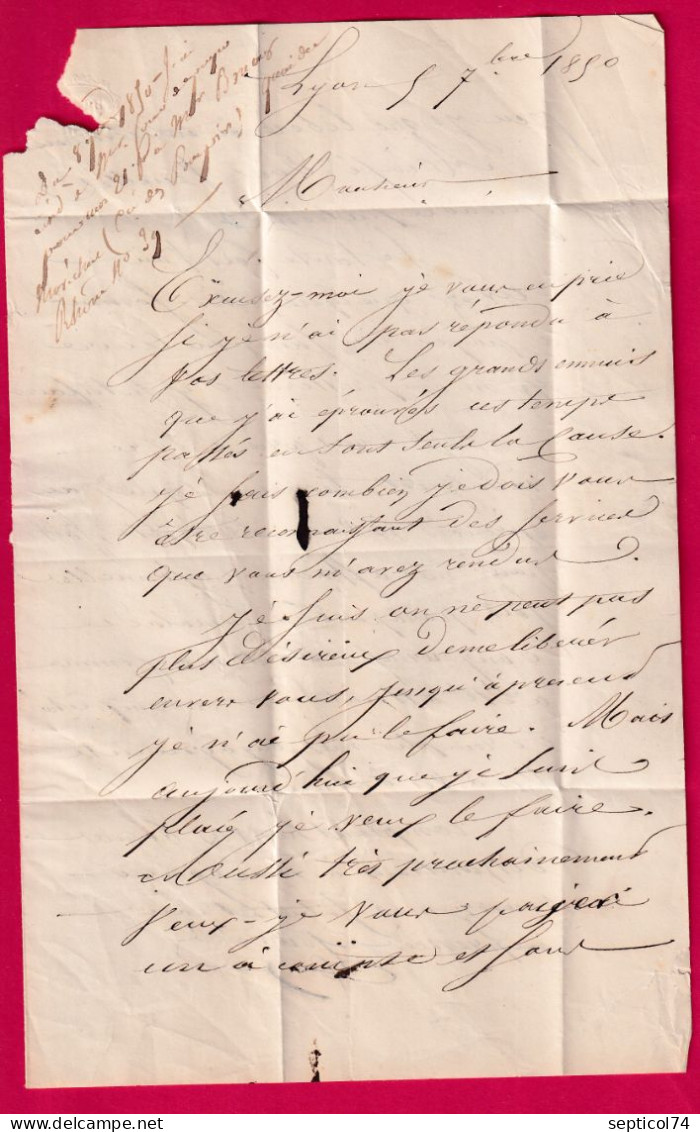 Lyon 5 7bre 1850
Du 8 7bre 1850
Rhône No 39
Monsieur
Excusez-moi je vous en prie
si je n'ai pas répondu à
vos lettres. Les grands ennuis
que j'ai éprouvés ces temps
passés en sont seuls la cause.
je sais combien je dois vous
être reconnaissant des services
que vous m'avez rendus.
je suis on ne peut pas
plus désireux de me libérer
envers vous, jusqu'à présent
je n'ai pu le faire. Mais
aujourd'hui que je suis
placé je veux le faire.
Aussi très prochainement
veux-je vous payer
un à compte et sous
www.delcampe.net
septicol74